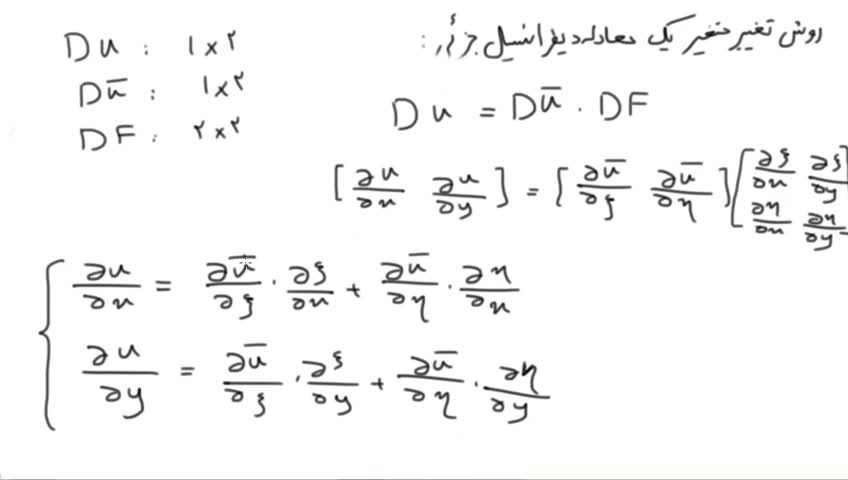 روش تغییر متغیر یک معادله دیفرانسیل جزئی:
Du : ۱×۲
Dū : ۱×۲
DF : ۲×۲
Du = Dū . DF
[∂u/∂x ∂u/∂y] = [∂ū/∂ξ ∂ū/∂η] [∂ξ/∂x ∂ξ/∂y
∂η/∂x ∂η/∂y]
{ ∂u/∂x = ∂ū/∂ξ . ∂ξ/∂x + ∂ū/∂η . ∂η/∂x
∂u/∂y = ∂ū/∂ξ . ∂ξ/∂y + ∂ū/∂η . ∂η/∂y